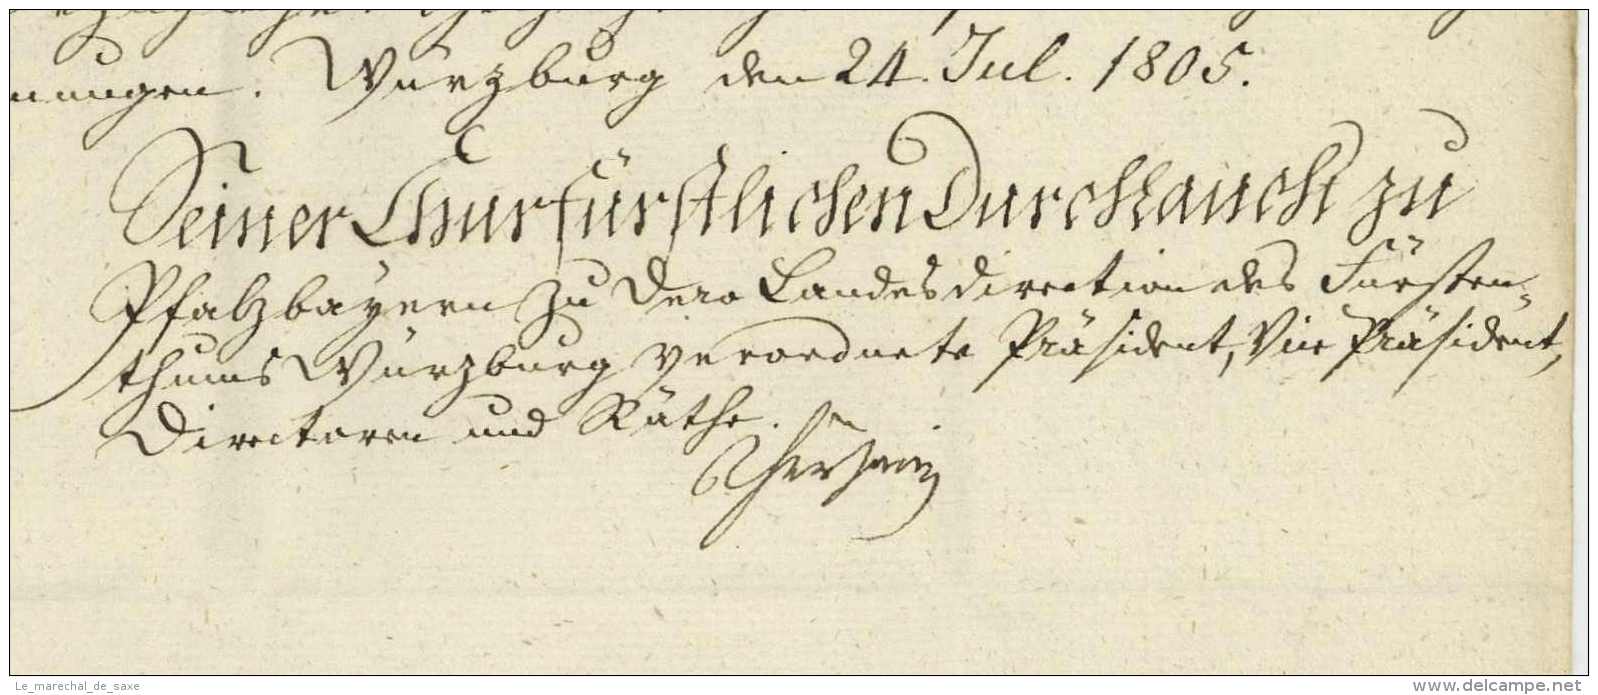 nungen. Würzburg den 24. Jul. 1805.
Seiner Churfürstlichen Durchlaucht zu
Pfalzbayern zu Dero Landesdirection des Fürsten-
thums Würzburg verordnete Präsident, Vice Präsident,
Directoren und Räthe.
Le_marechal_de_saxe
www.delcampe.net